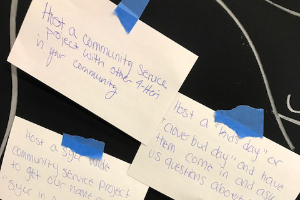 Host a community service
project with other 4-Hers
in your community
Host a "kids day" or
"clover bud day" and have
them come in and ask
us questions about
Host a
wide
community service project
to get our name
in